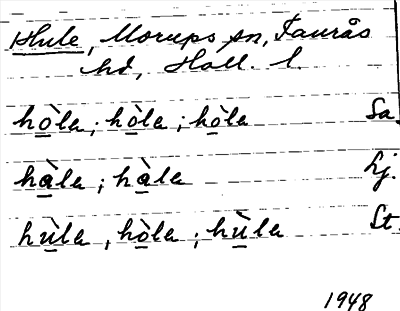 Hule, Morups sn, Faurås
hd, Hall. l.
hòla; hòla; hòla Sa
hàla; hàla Lj.
hùla, hòla; hùla St.
1948